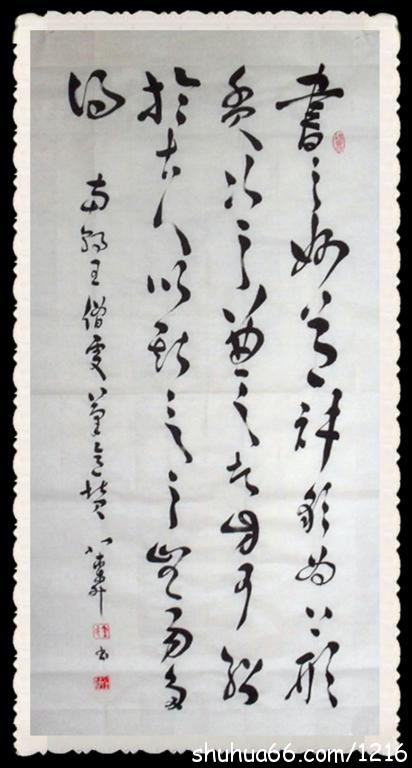 書之妙道神彩为上形
质次之兼之者方可紹
於古人以斯言之豈易多
得
南朝王僧虔筆意赞
shuhua66.com/1216